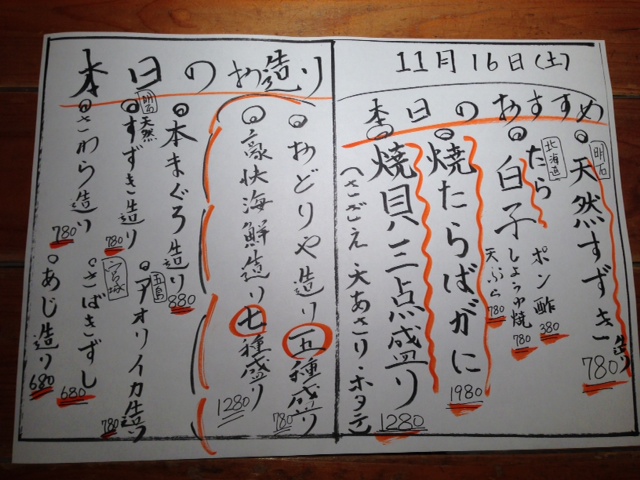 11月16日(土)
本日のおすすめ
明石
天然すずき造り
780
北海道
たら白子
ポン酢 380
しょうゆ焼 780
天ぷら 780
焼たらばがに
1980
焼貝三点盛り
1280
(さざえ・大あさり・ホタテ
本日のお造り
おどりや造り五種盛り
780
豪快海鮮造り七種盛り
1280
本まぐろ造り
880
五島
アオリイカ造り
780
明石
天然
すずき造り
780
宮城
さばきずし
680
さわら造り
780
あじ造り
680